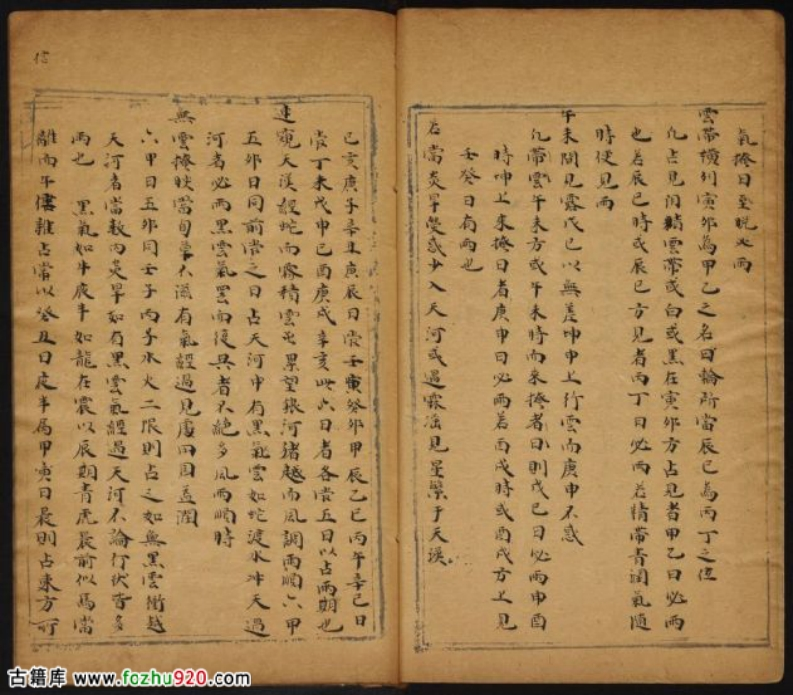 氣掩日至晚必雨
雲帶横列寅卯為甲乙之名日輪所當辰巳為丙丁之位
凡占見閃精雲帶或白或黑在寅卯方占見者甲乙日必雨
也若辰巳時或辰巳方見者丙丁日必雨若精帶青潤氣隨
時便見雨
午未間見露戊己以無差坤申上行雲而庚申不惑
凡帶雲午未方或午未時而來掩者日則戊己日必雨申酉
時坤上來掩日者庚申日必雨若酉戌時或酉戌方上見
壬癸日有雨也
若當炎旱熒惑少入天河或遇霖滛見星聚于天漢
己亥庚子辛丑庚辰日當壬寅癸卯甲辰乙巳丙午辛巳日
當丁未戊申己酉庚戌辛亥此六日者各當五日以占雨期也
連窺天漢經蛇而霧積雲屯累望銀河猪越而風調雨順六甲
五卯日同前當之日占天河中有黑氣雲如蛇渡水冲天過
河者必雨黑雲氣罡而復具者不絶多風雨順時
無雲掩映當旬早不滋有氣經過見處四固益潤
六甲日五卯同壬子丙子水火二限則占之如無黑雲衝越
天河者當數內炎旱如有黑雲氣經過天河不論行伏皆多
雨也 黑氣如牛夜半如龍在震以辰期青虎晨前似馬當
離而午儻雜占當以癸丑日夜半為甲寅日晨則占東方可
古籍库 www.fozhu920.com